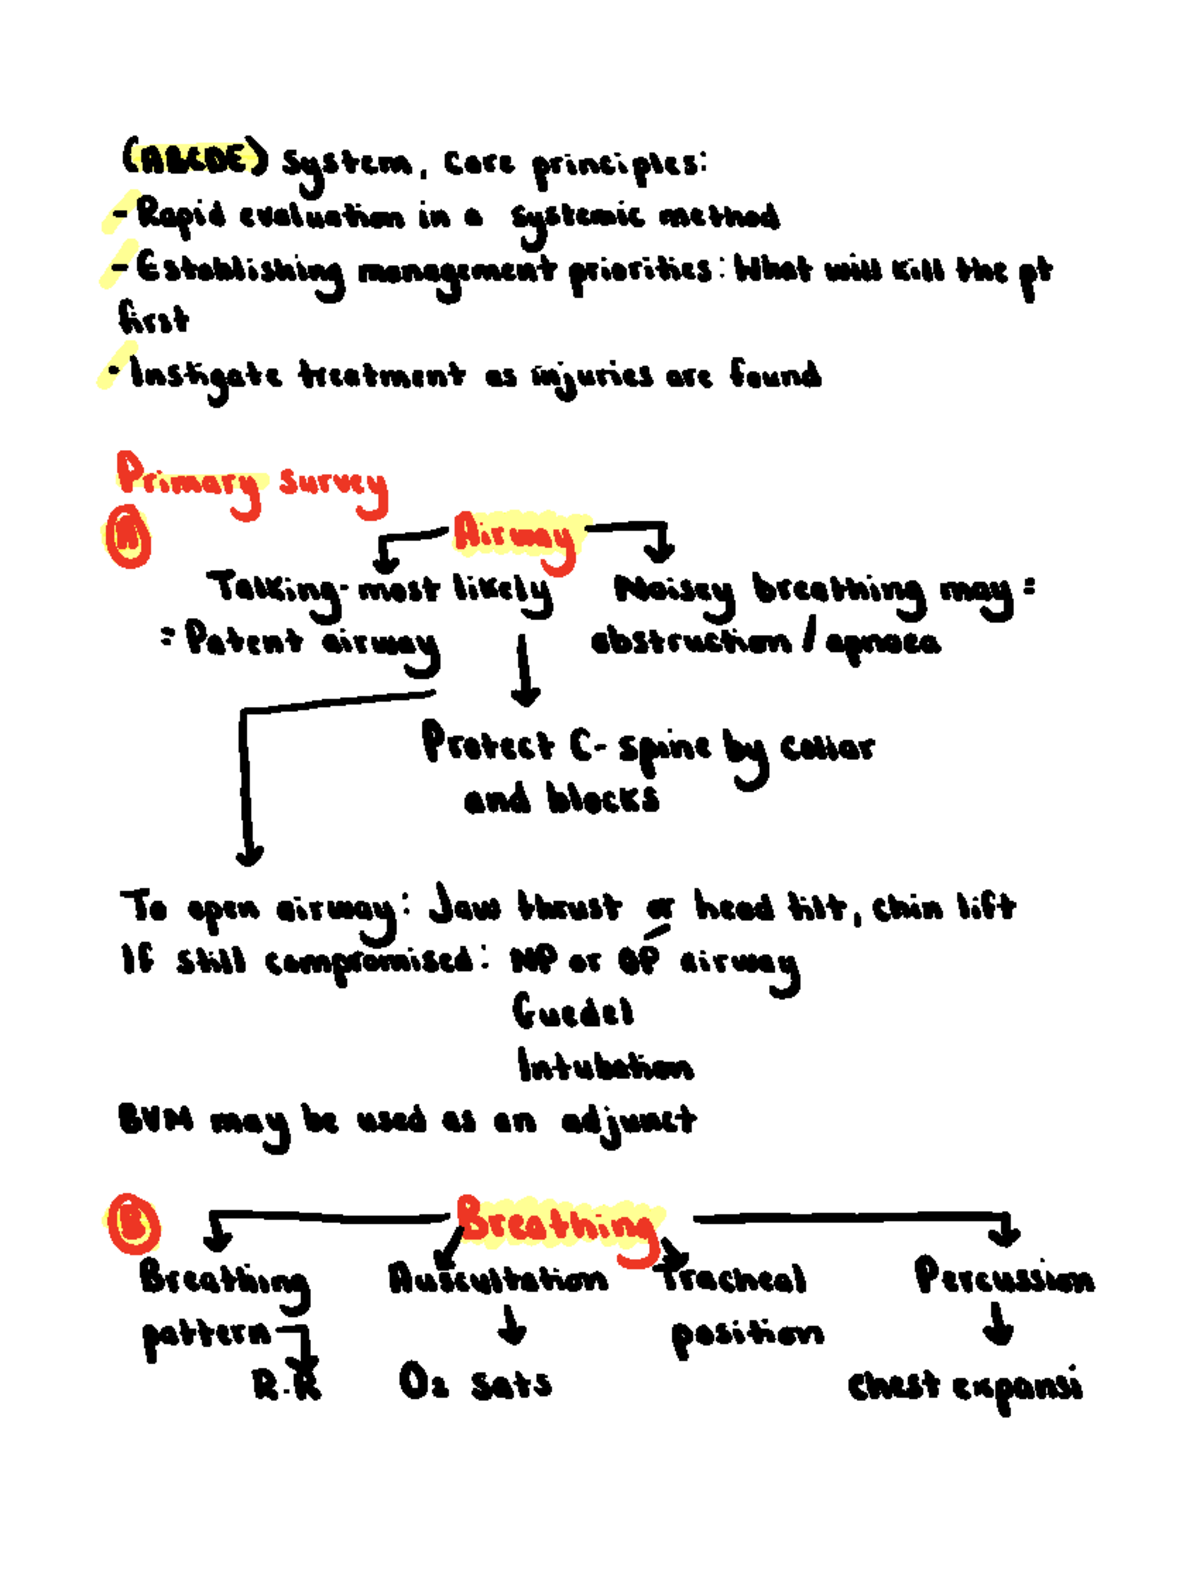 (ABCDE) system, core principles:
- Rapid evaluation in a systemic method
- Establishing management priorities: What will kill the pt
first
• Instigate treatment as injuries are found
Primary survey
A Airway
Talking - most likely Noisey breathing may =
= Patent airway obstruction / apnoea
Protect C-spine by collar
and blocks
To open airway: Jaw thrust or head tilt, chin lift
If still compromised: NP or OP airway
Guedel
Intubation
BVM may be used as an adjunct
B Breathing
Breathing Auscultation Tracheal Percussion
pattern position
R.R O2 sats chest expansi